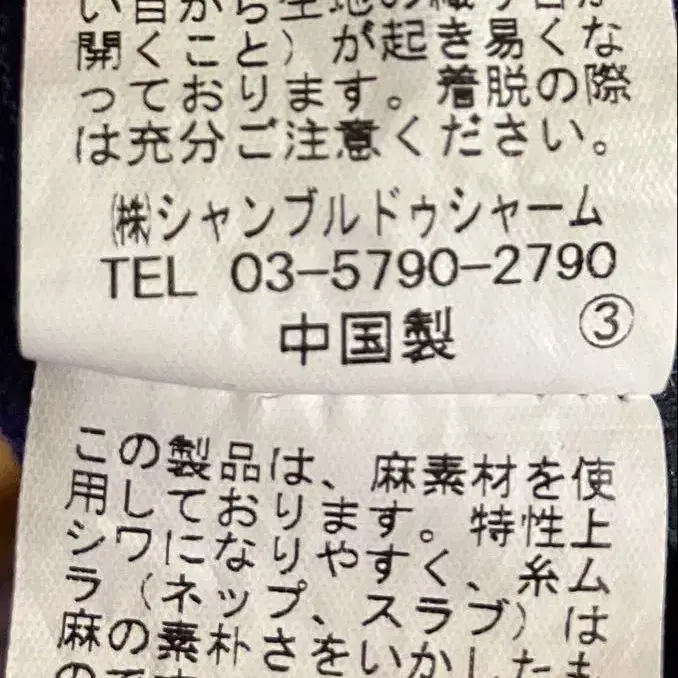 い目から生地の織り目が
開くこと）が起き易くな
っております。着脱の際
は充分ご注意ください。
㈱シャンブルドゥシャーム
TEL 03-5790-2790
中国製
③
この製品は、麻素材を使
用しております。特性上
シワになりやすく、糸ム
ラ（ネップ、スラブ）は
麻の素朴さをいかしたも
のです